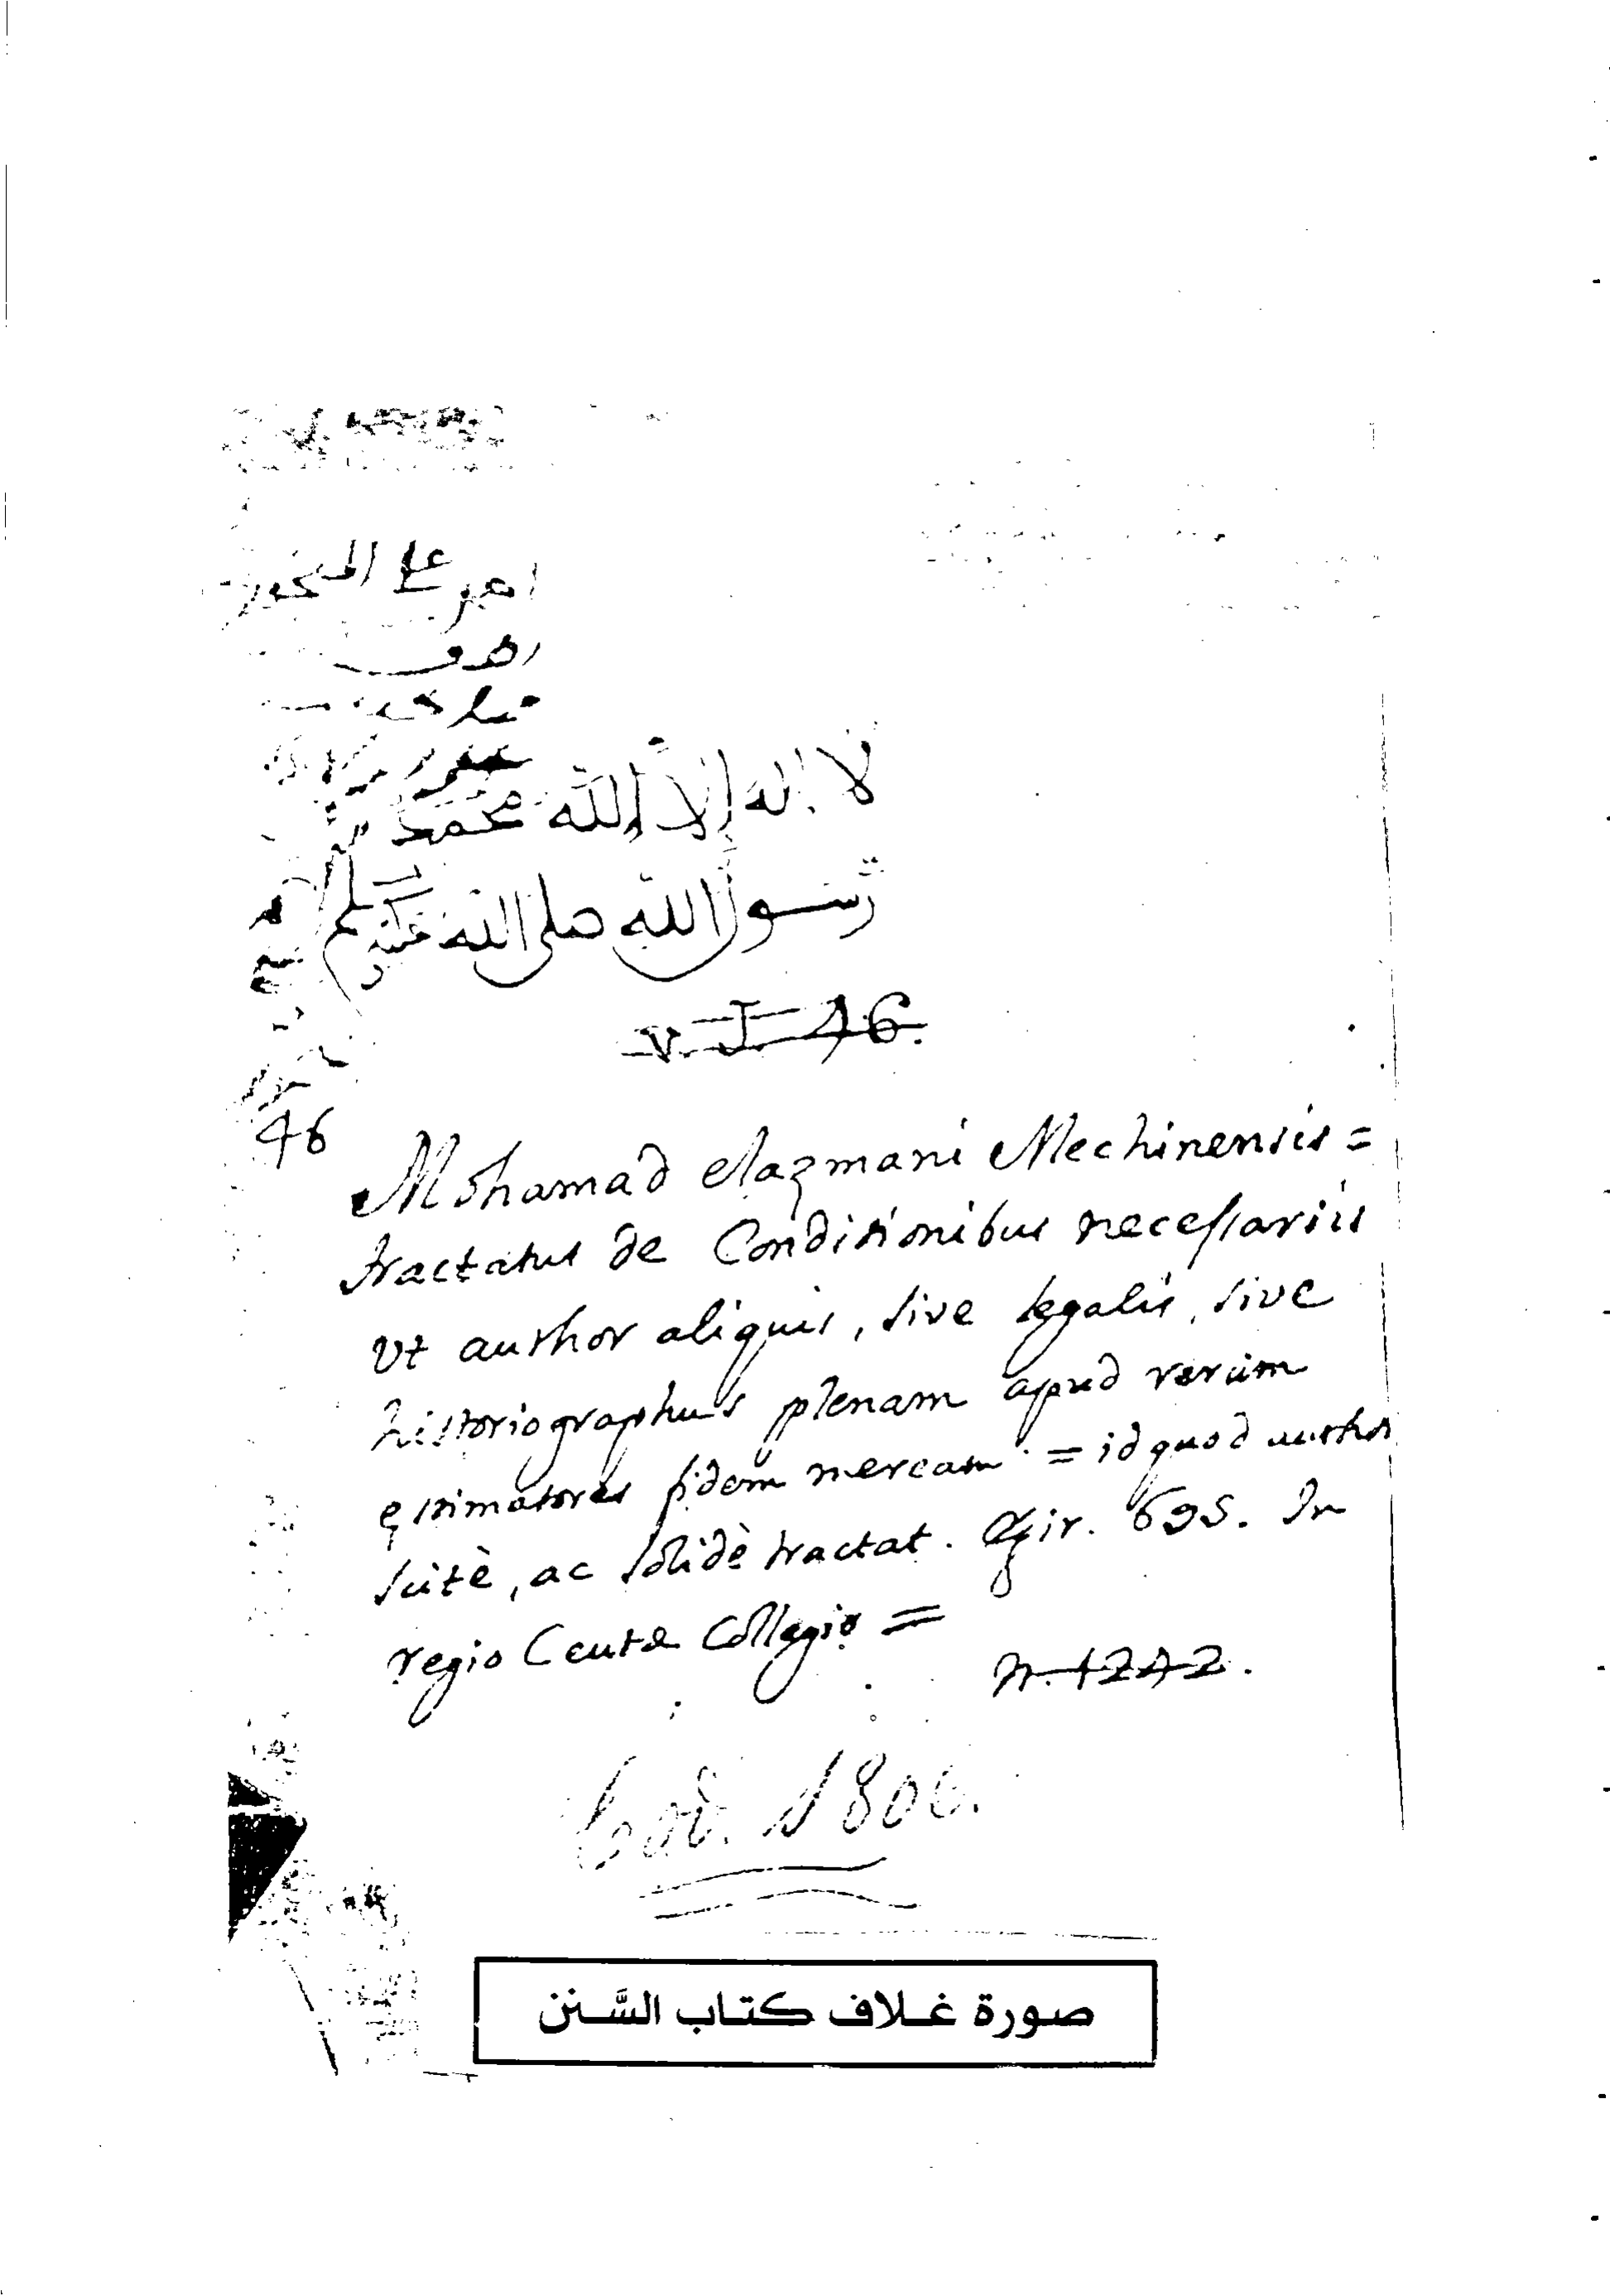 لا اله إلا الله محمد
رسول الله صلى الله عليه وسلم
v. J. 46.
46
Mohamad elazmani Mechinensis =
tractatus de Conditionibus necessariis
vt author aliquis, sive legalis, sive
historiographus plenam apud rerum
estimatores fidem mereatur = id quod author
scitè, ac solidè tractat. Egir. 695. In
regio Ceutæ Collegio =
n. 1242.
Cod. 1806.
صورة غلاف كتاب السَّنن